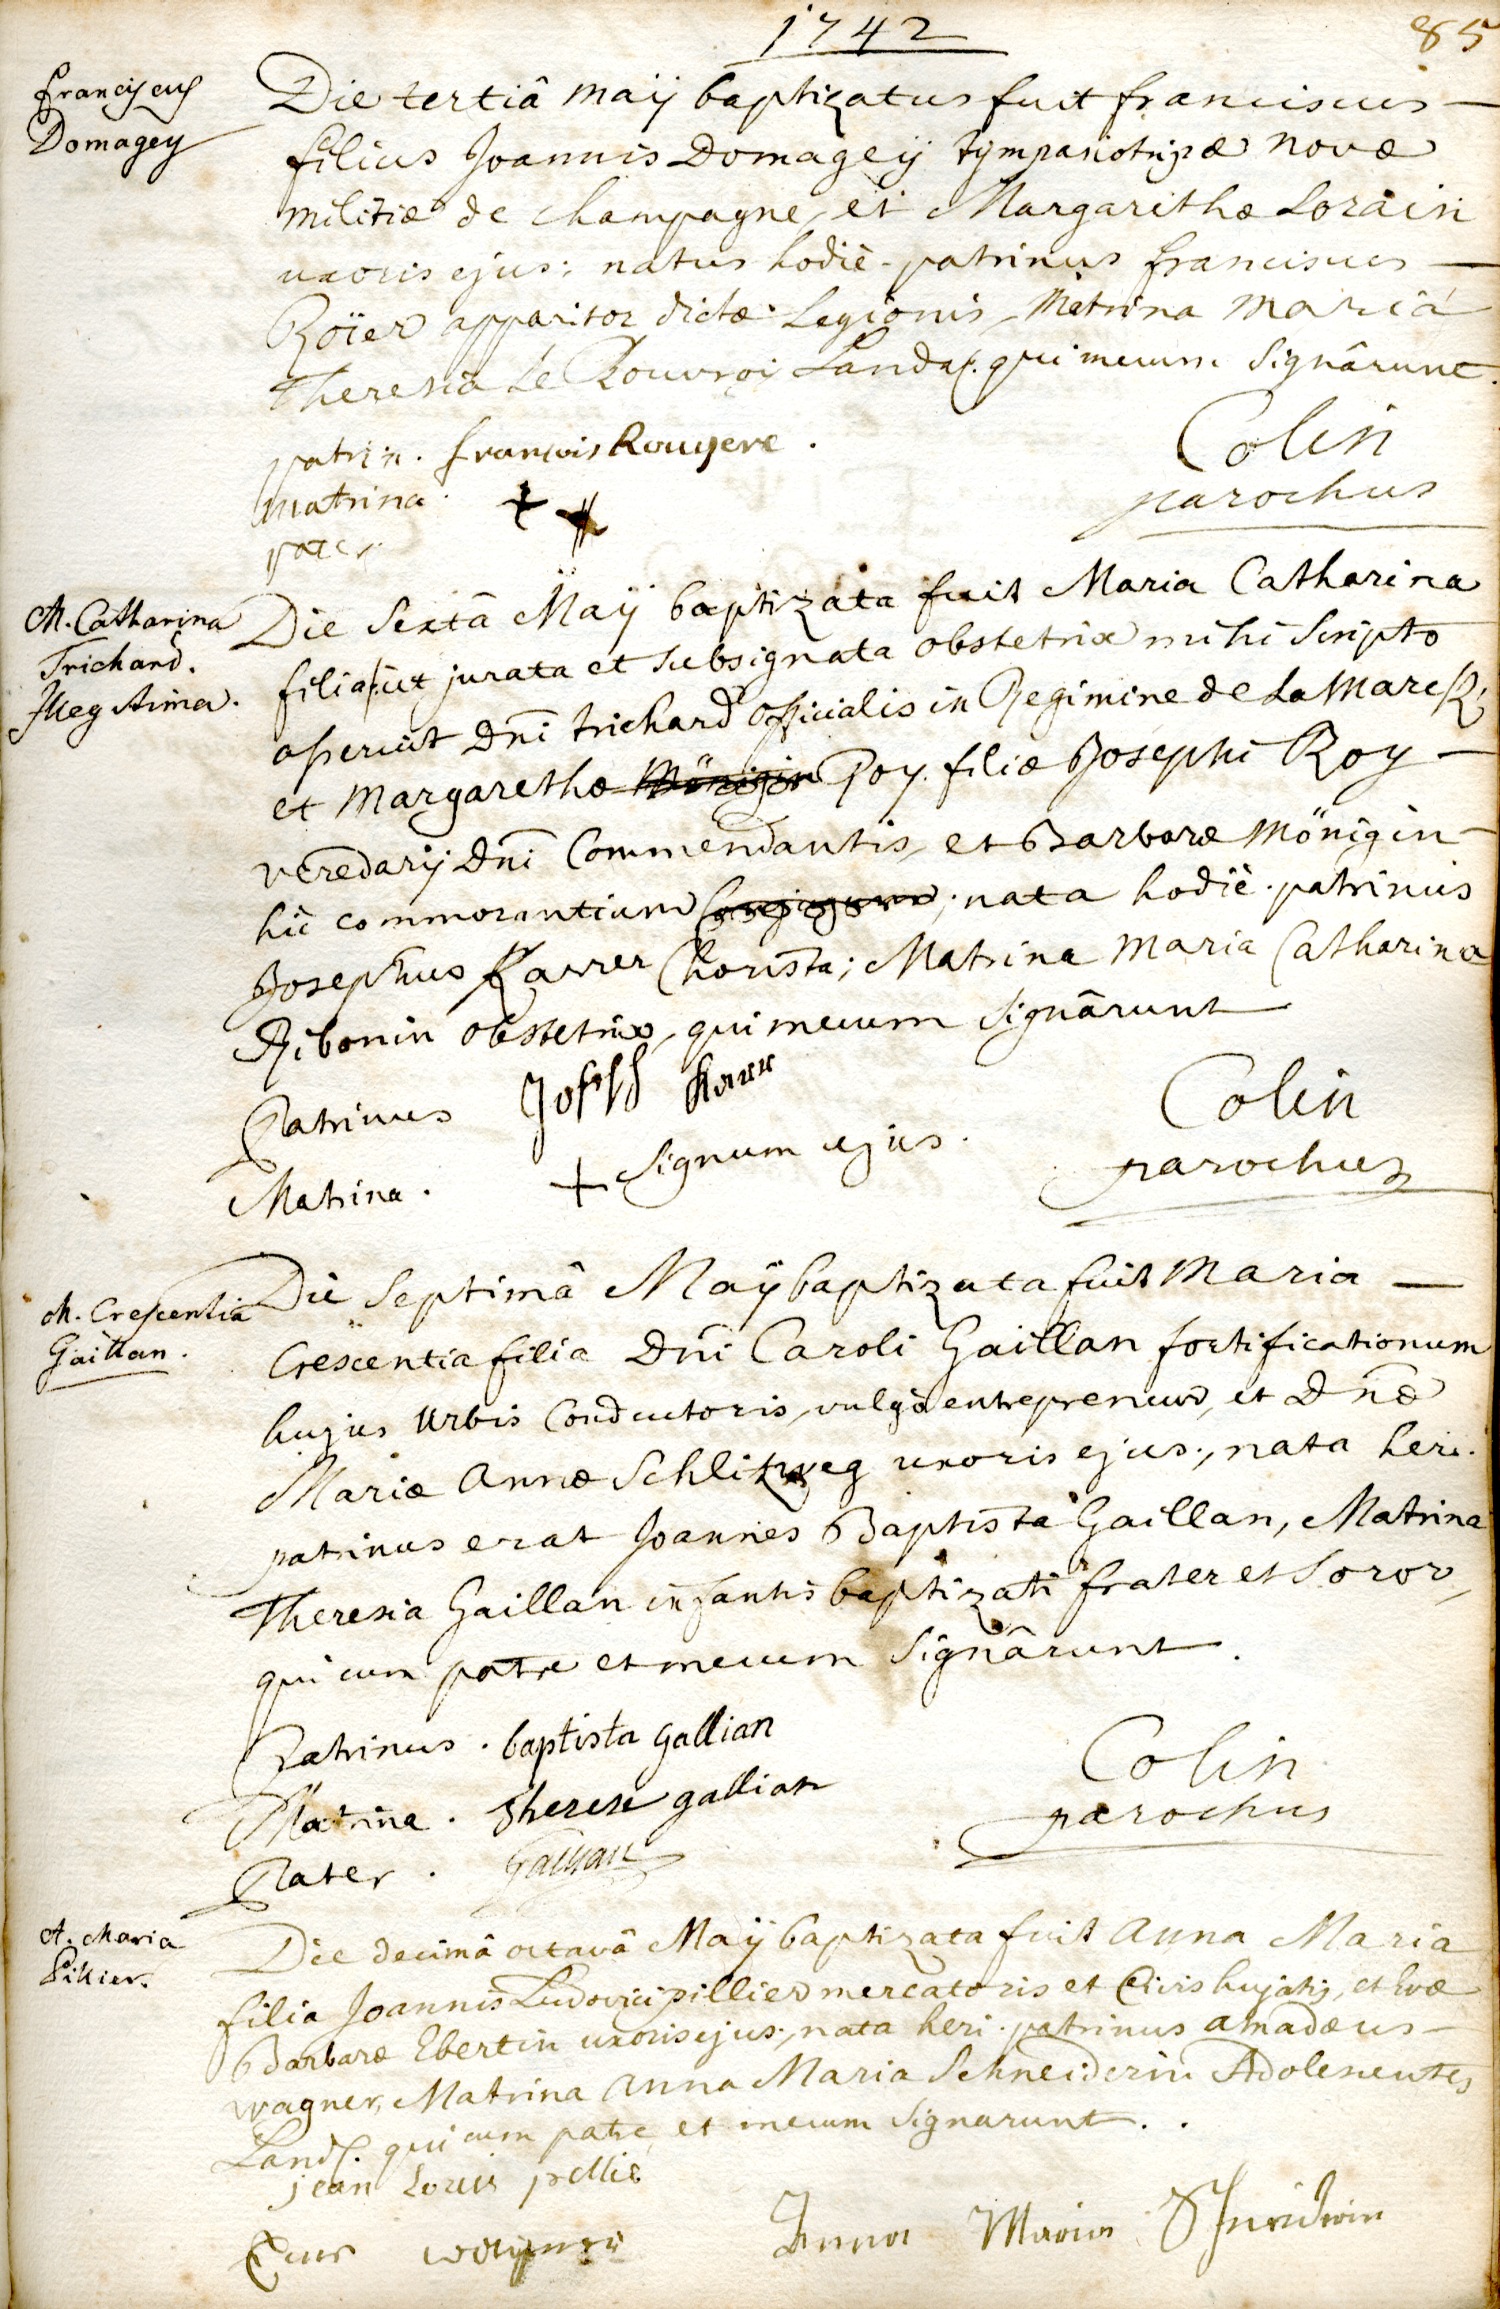 1742
85
Franciscus
Domagey
Die tertiâ maÿ baptizatus fuit franciscus —
filius Joannis Domageÿ tympanotribæ novæ
militiæ de champagne, et Margarithæ Lorain
uxoris ejus; natus hodiè. patrinus franciscus —
Roïer apparitor dictæ Legionis, Matrina maria
Theresia Le Rouvroÿ Landaſ. qui mecum signârunt.
patrin. françois Rougere.
matrina.
pater
Colin
parochus
M. Catharina
Trichard.
Illegitima.
Die Sextâ Maÿ baptizata fuit Maria Catharina
filia, ut jurata et subsignata obstetrix mihi scripto
asseruit Dni trichard officialis in Regimine de La Marck;
et Margarethæ Mönigin Roy. filiæ Josephi Roy —
veredarij Dni Commendantis, et Barbaræ Mönigin —
hîc commorantium Conjugum; nata hodiè. patrinus
Josephus Karrer Chorista; Matrina Maria Catharina
Ribonin obstetrix, qui mecum signârunt
Patrinus Joseph Karr
Matrina. + signum ejus.
Colin
parochus
M. Crescentia
Gaillan.
Die Septimâ Maÿ baptizata fuit Maria —
Crescentia filia Dni Caroli Gaillan fortificationum
hujus Urbis Conductoris, vulgò entrepreneur, et Dnæ
Mariæ Annæ Schlitzweg uxoris ejus; nata heri.
patrinus erat Joannes Baptista Gaillan, Matrina
Theresia Gaillan infantis baptizati frater et Soror,
qui cum patre et mecum signârunt.
Patrinus. baptista gallian
Matrina. therese gallian
Pater. Gallian
Colin
parochus
A. Maria
Pillier.
Die decimâ octavâ Maÿ baptizata fuit Anna Maria
filia Joannis Ludovici pillier mercatoris et Civis hujatis, et Evæ
Barbaræ Ebertin uxoris ejus; nata heri. patrinus amadæus —
wagner, Matrina Anna Maria Schneiderin Adolescentes
Landſ. qui cum patre et mecum signarunt..
jean Louis pellié
wagner
Anna Maria Schneiderin